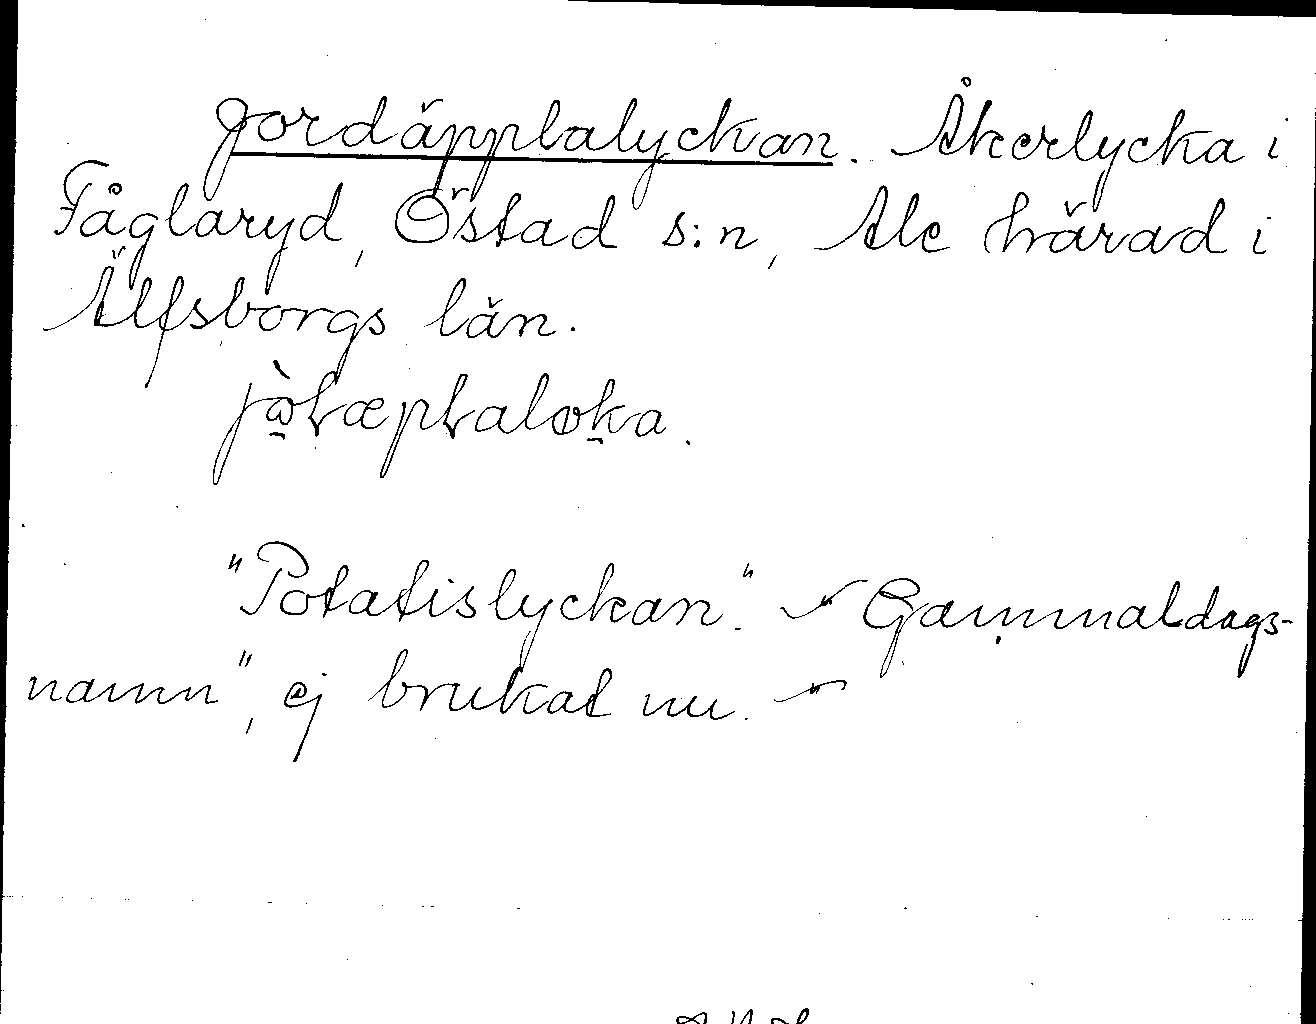 Jordäpplalyckan. Åkerlycka i
Fåglaryd, Östad s:n, Ale härad i
Älfsborgs län.
"Potatislyckan." – Gammaldags-
namn", ej brukat nu. –